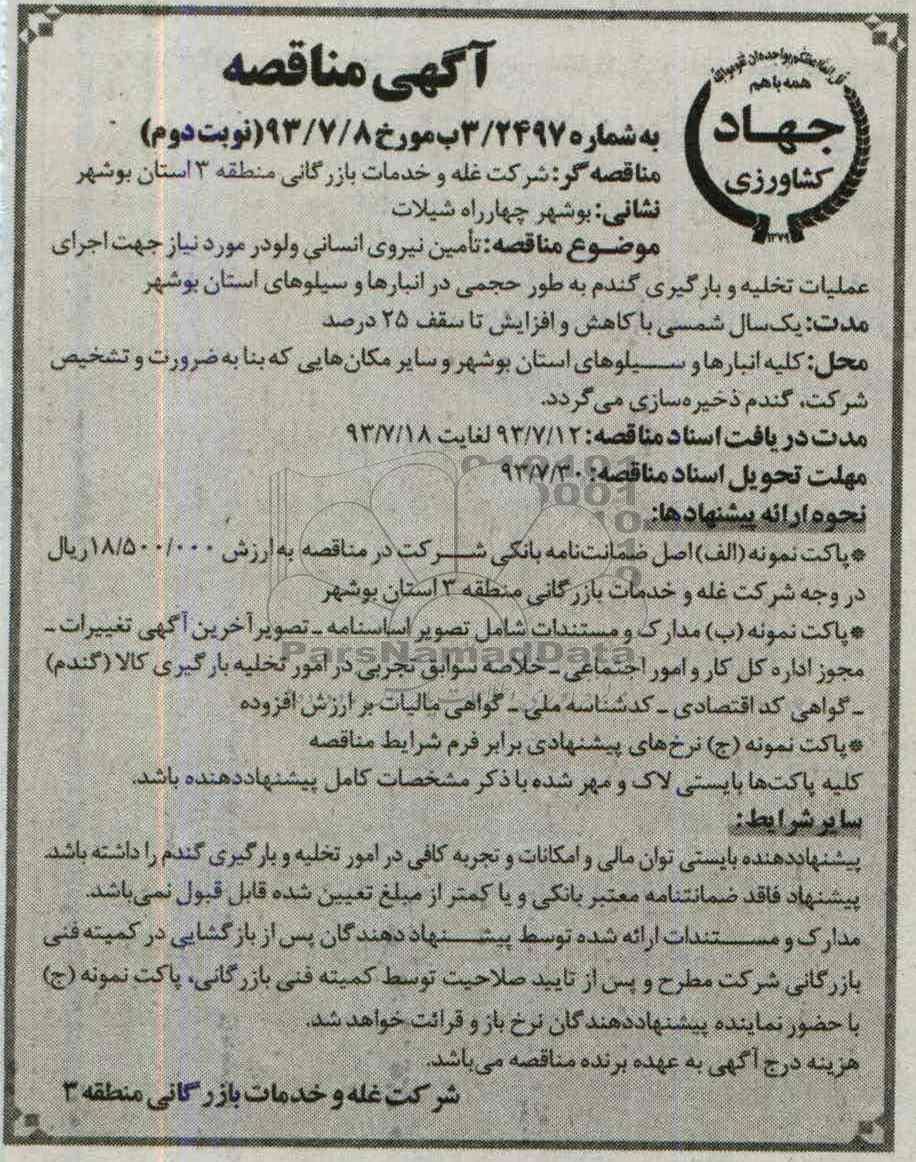 آگهی مناقصه
همه با هم
جهاد
کشاورزی
۱۳۷۹
به شماره ۳/۲۴۹۷ب مورخ ۹۳/۷/۸ (نوبت دوم)
مناقصه گر: شرکت غله و خدمات بازرگانی منطقه ۳ استان بوشهر
نشانی: بوشهر چهارراه شیلات
موضوع مناقصه: تأمین نیروی انسانی ولودر مورد نیاز جهت اجرای
عملیات تخلیه و بارگیری گندم به طور حجمی در انبارها و سیلوهای استان بوشهر
مدت: یک‌سال شمسی با کاهش و افزایش تا سقف ۲۵ درصد
محل: کلیه انبارها و سیلوهای استان بوشهر و سایر مکان‌هایی که بنا به ضرورت و تشخیص
شرکت، گندم ذخیره‌سازی می‌گردد.
مدت دریافت اسناد مناقصه: ۹۳/۷/۱۲ لغایت ۹۳/۷/۱۸
مهلت تحویل اسناد مناقصه: ۹۳/۷/۳۰
نحوه ارائه پیشنهادها:
*پاکت نمونه (الف) اصل ضمانت‌نامه بانکی شرکت در مناقصه به ارزش ۱۸/۵۰۰/۰۰۰ریال
در وجه شرکت غله و خدمات بازرگانی منطقه ۳ استان بوشهر
*پاکت نمونه (ب) مدارک و مستندات شامل تصویر اساسنامه ـ تصویر آخرین آگهی تغییرات ـ
مجوز اداره کل کار و امور اجتماعی ـ خلاصه سوابق تجربی در امور تخلیه بارگیری کالا (گندم)
ـ گواهی کد اقتصادی ـ کدشناسه ملی ـ گواهی مالیات بر ارزش افزوده
*پاکت نمونه (ج) نرخ‌های پیشنهادی برابر فرم شرایط مناقصه
کلیه پاکت‌ها بایستی لاک و مهر شده با ذکر مشخصات کامل پیشنهاددهنده باشد.
سایر شرایط:
پیشنهاددهنده بایستی توان مالی و امکانات و تجربه کافی در امور تخلیه و بارگیری گندم را داشته باشد.
پیشنهاد فاقد ضمانتنامه معتبر بانکی و یا کمتر از مبلغ تعیین شده قابل قبول نمی‌باشد.
مدارک و مستندات ارائه شده توسط پیشنهاد دهندگان پس از بازگشایی در کمیته فنی
بازرگانی شرکت مطرح و پس از تایید صلاحیت توسط کمیته فنی بازرگانی، پاکت نمونه (ج)
با حضور نماینده پیشنهاددهندگان نرخ باز و قرائت خواهد شد.
هزینه درج آگهی به عهده برنده مناقصه می‌باشد.
شرکت غله و خدمات بازرگانی منطقه ۳
ParsNamadData